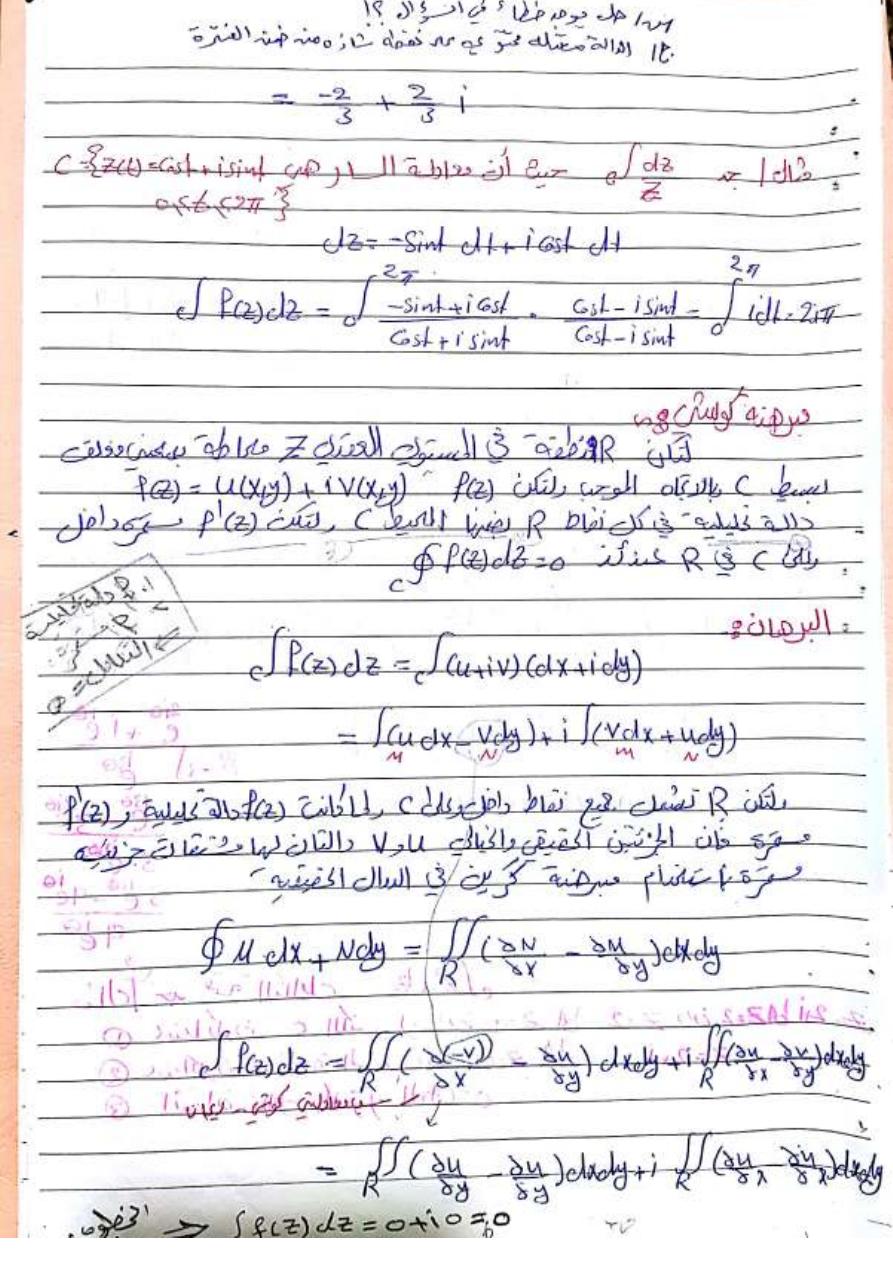 س/ هل يوجد خطأ في السؤال ؟!
ج/ الدالة معتله تحتوي على نقطة شاذه من ضمن الفترة
= -2/3 + 2/3 i
مثال/ جد ∫c dz/z حيث أن معادلة المسار هي C={z(t)=cost+isint
0≤t≤2π}
dz = -sint dt + i cost dt
c∫ f(z)dz = ∫₀^2π (-sint+icost)/(cost+isint) · (cost-isint)/(cost-isint) = ∫₀^2π idt = 2iπ
مبرهنة كوشي:
لتكن R منطقة في المستوي العقدي Z محاطة بمنحني مغلق
بسيط C بالاتجاه الموجب ولتكن f(z) f(z) = u(x,y) + i v(x,y)
دالة تحليلية في كل نقاط R بضنها المحيط C ولتكن f'(z) مستمرة داخل
وعلى C في R عندئذ ∮c f(z)dz=0
1. f دالة تحليلية
2. f' مستمرة
⇐ التكامل = 0
البرهان:
c∫ f(z) dz = c∫(u+iv)(dx+idy)
= ∫(u dx - v dy) + i ∫(v dx + u dy)
M N M N
ولتكن R تشمل جميع نقاط داخل وعلى C ولما كانت f(z) دالة تحليلية و f'(z)
مستمرة فان الجزئين الحقيقي والخيالي u و v دالتان لها مشتقات جزئيه
مستمرة بأستخدام مبرهنة كرين في الدوال الحقيقيه
∮ M dx + N dy = ∬R (∂N/∂x - ∂M/∂y) dxdy
c∫ f(z)dz = ∬R (∂(-v)/∂x - ∂u/∂y) dxdy + i ∬R (∂u/∂x - ∂v/∂y) dxdy
معادلتي كوشي - ريمان
= ∬R (∂u/∂y - ∂u/∂y) dxdy + i ∬R (∂u/∂x - ∂u/∂x) dxdy
⇒ ∫f(z) dz = 0+i0 = 0